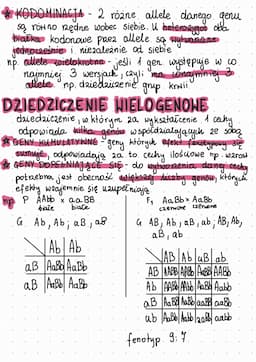 * KODOMINACJA - 2 różne allele danego genu
są równo rzędne wobec siebie. U heterozygot oba
białka kodowane przez allele są wytwarzane
jednocześnie i niezależnie od siebie
np allele wielokrotne - jeśli 1 gen występuje w co
najmniej 3 wersjach, czyli ma conajmniej 3
allele np. dziedziczenie grup krwi
DZIEDZICZENIE WIELOGENOWE
dziedziczenie, w którym za wykształcenie 1 cechy
odpowiada kilka genów współdziałających ze sobą
* GENY KUMULATYWNE - geny których efekt fenotypowy się
sumuje, odpowiadają za to cechy ilościowe np. wzrost
* GENY DOPEŁNIAJĄCE SIĘ - do wytworzenia danej cechy
potrzebna jest obecność większej liczby genów, których
efekty wzajemnie się uzupełniają
np P AAbb x aaBB
białe białe
G Ab, Ab ; aB, aB
Ab Ab
aB AaBb AaBb
aB AaBb AaBb
F1 AaBb x AaBb
czerwone czerwone
G AB, Ab, aB, ab ; AB, Ab,
aB, ab
AB Ab aB ab
AB AABB AABb AaBB AaBb
Ab AABb AAbb AaBb Aabb
aB AaBB AaBb aaBB aaBb
ab AaBb Aabb aaBb aabb
fenotyp 9:7